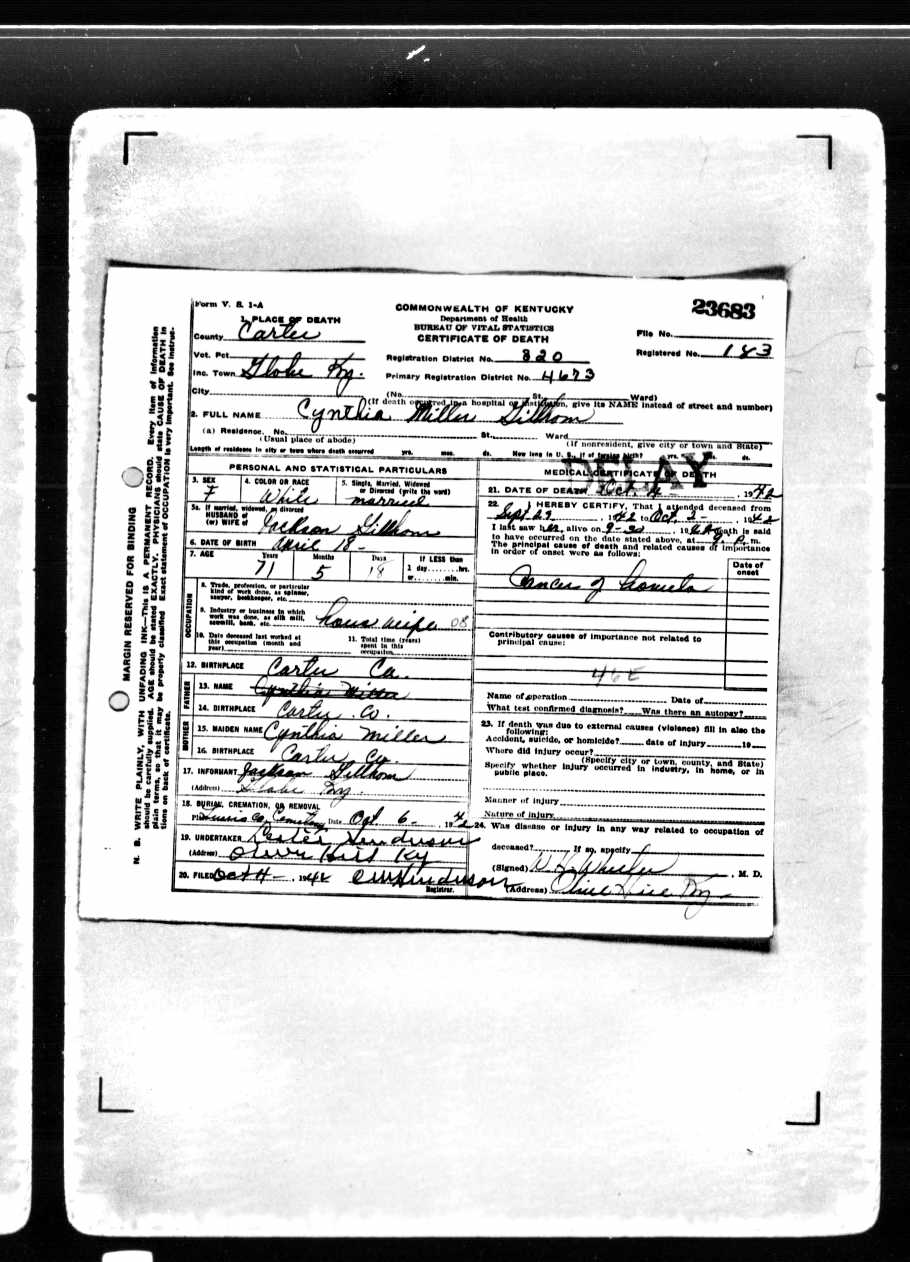 Form V. S. 1-A
COMMONWEALTH OF KENTUCKY
Department of Health
BUREAU OF VITAL STATISTICS
CERTIFICATE OF DEATH
23683
File No.
Registered No. 143
1. PLACE OF DEATH
County Carter
Vot. Pct.
Inc. Town Globe Ky.
City
Registration District No. 820
Primary Registration District No. 4673
(No. St. Ward)
(If death occurred in a hospital or institution, give its NAME instead of street and number)
2. FULL NAME Cynthia Miller Gilliom
(a) Residence. No. St. Ward
(Usual place of abode) (If nonresident, give city or town and State)
Length of residence in city or town where death occurred yrs. mos. ds. How long in U. S., if of foreign birth? yrs. mos. ds.
PERSONAL AND STATISTICAL PARTICULARS
3. SEX F
4. COLOR OR RACE White
5. Single, Married, Widowed or Divorced (write the word) married
5a. If married, widowed, or divorced
HUSBAND of
(or) WIFE of Jackson Gilliom
6. DATE OF BIRTH April 18-
7. AGE Years 71 Months 5 Days 18 If LESS than 1 day hrs. or min.
OCCUPATION
8. Trade, profession, or particular kind of work done, as spinner, sawyer, bookkeeper, etc.
9. Industry or business in which work was done, as silk mill, sawmill, bank, etc. house wife 08
10. Date deceased last worked at this occupation (month and year)
11. Total time (years) spent in this occupation
12. BIRTHPLACE Carter Co.
FATHER
13. NAME
14. BIRTHPLACE Carter Co.
MOTHER
15. MAIDEN NAME Cynthia Miller
16. BIRTHPLACE Carter Co.
17. INFORMANT Jackson Gilliom
(Address) Globe Ky.
18. BURIAL, CREMATION, OR REMOVAL
Place Lewis Co. Cemetery Date Oct. 6-, 1942
19. UNDERTAKER Lester Henderson
(Address) Olive Hill Ky
20. FILED Oct 4-, 1942 Registrar.
MEDICAL CERTIFICATE OF DEATH
DELAY
21. DATE OF DEATH Oct. 4, 1942
22. I HEREBY CERTIFY, That I attended deceased from
Sept 29, 1942 to Oct. 2-, 1942
I last saw her alive on 9-30, 1942 death is said
to have occurred on the date stated above, at 9 P. m.
The principal cause of death and related causes of importance
in order of onset were as follows:
Date of onset
Cancer of
Contributory causes of importance not related to
principal cause:
46E
Name of operation Date of
What test confirmed diagnosis? Was there an autopsy?
23. If death was due to external causes (violence) fill in also the
following:
Accident, suicide, or homicide? date of injury 19
Where did injury occur?
(Specify city or town, county, and State)
Specify whether injury occurred in industry, in home, or in
public place.
Manner of injury
Nature of injury
24. Was disease or injury in any way related to occupation of
deceased? If so, specify
(Signed) , M. D.
(Address) Olive Hill Ky-
MARGIN RESERVED FOR BINDING
N. B. WRITE PLAINLY, WITH UNFADING INK—This is A PERMANENT RECORD. Every item of information
should be carefully supplied. AGE should be stated EXACTLY. PHYSICIANS should state CAUSE OF DEATH in
plain terms, so that it may be properly classified. Exact statement of OCCUPATION is very important. See instruc-
tions on back of certificate.